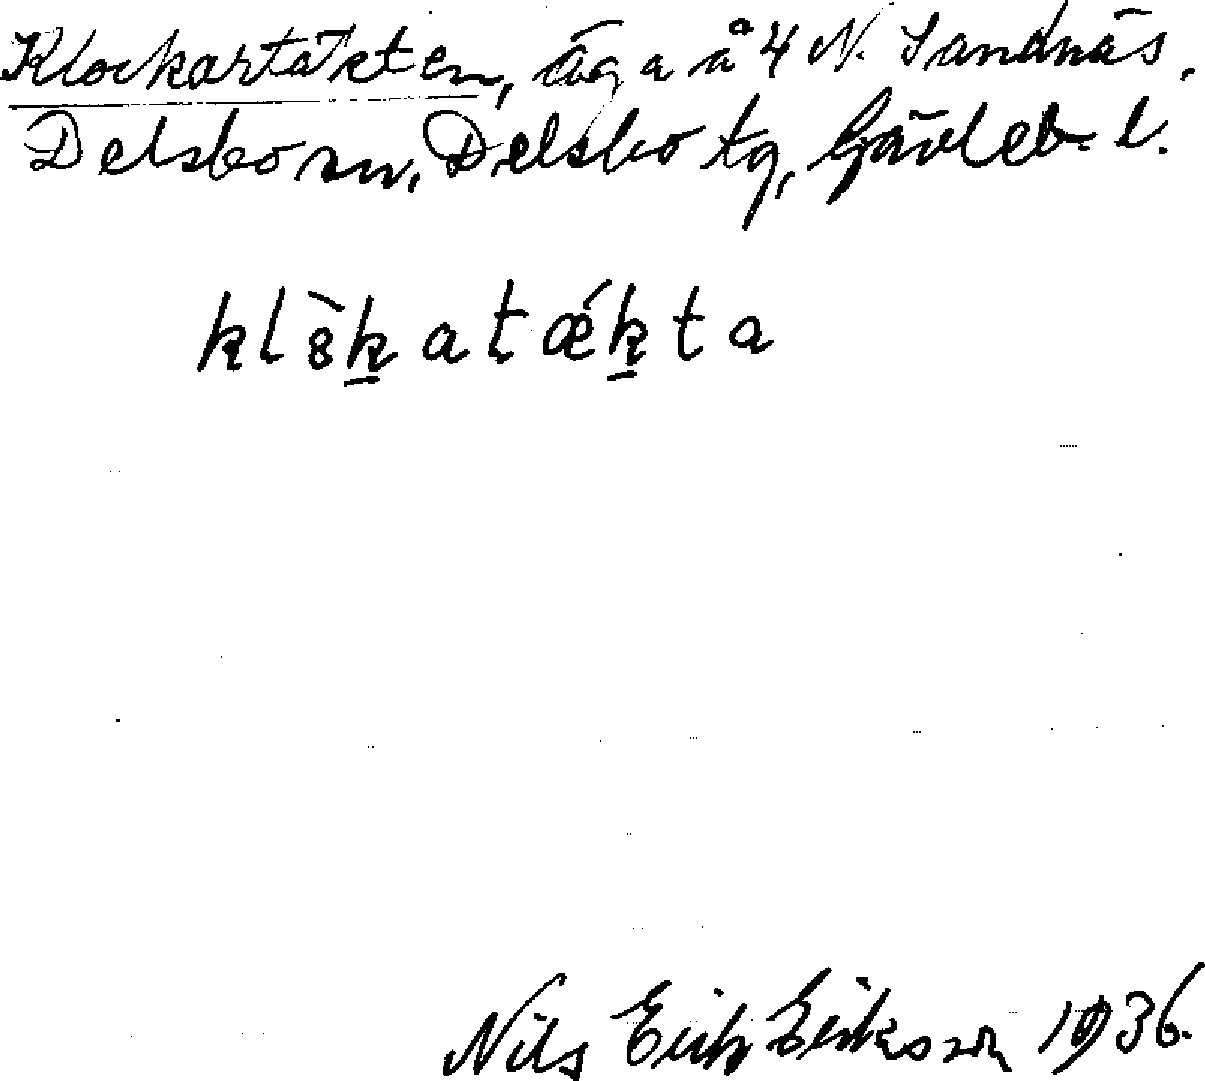 Klockartäkten, äga å 4 N. Sandnäs,
Delsbo sn, Delsbo tg, Gävleb. l.
klȣ̀k̲atǽk̲ta
Nils Erik Eriksson 1936.